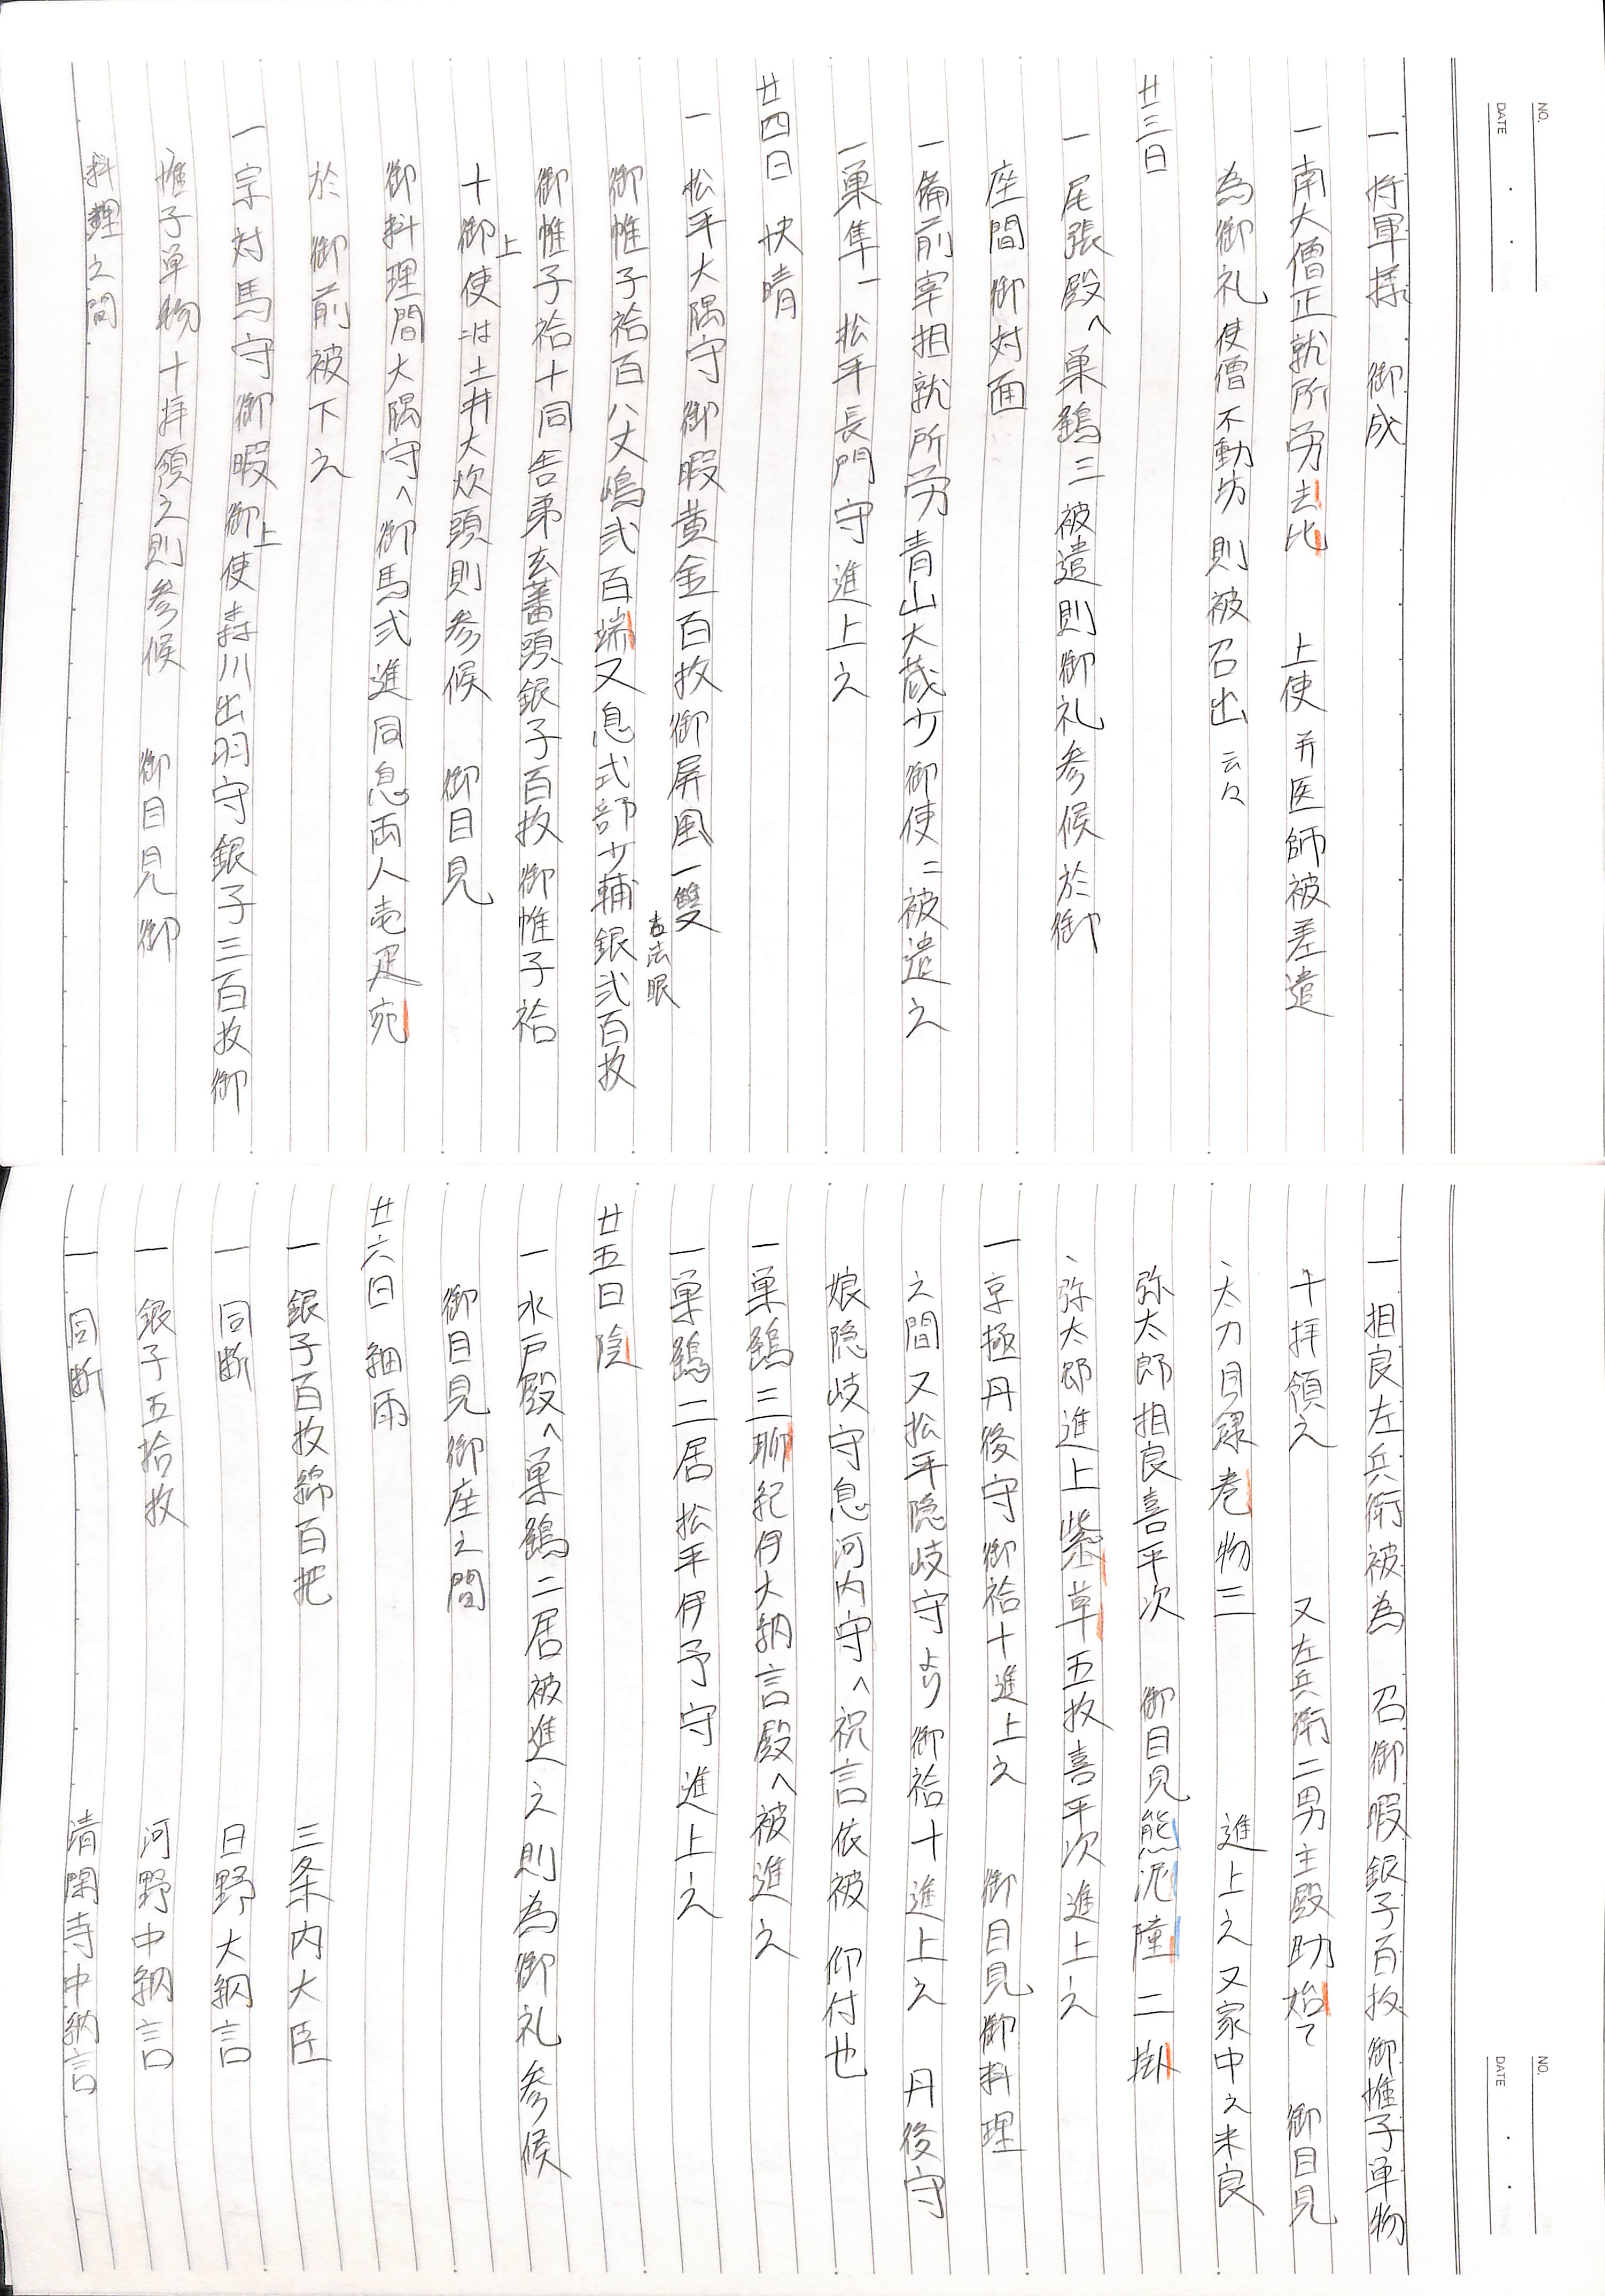 NO.
DATE
一 将軍様 御成
一 南大僧正就所労去比 上使并医師被差遣
為御礼使僧不動坊則被召出云々
廿三日
一 尾張殿へ巣鷂三被遣則御礼参候於御
座間御対面
一 備前宰相就所労青山大蔵少御使ニ被遣之
一 巣隼一 松平長門守進上之
廿四日 快晴
一 松平大隅守御暇黄金百枚御屏風一雙
古法眼
御帷子袷百八丈嶋弐百端又息式部少輔銀弐百枚
御帷子袷十同舎弟玄蕃頭銀子百枚御帷子袷
十御上使は土井大炊頭則参候 御目見
御料理間大隅守へ御馬弐進同息両人壱疋宛
於 御前被下之
一 宗対馬守御暇御上使森川出羽守銀子三百枚御
帷子単物十拝領之則参候 御目見御
料理之間
NO.
DATE
一 相良左兵衛被為 召御暇銀子百枚御帷子単物
十拝領之 又左兵衛二男主殿助始て 御目見
太刀目録巻物三 進上之又家中之米良
弥太郎相良喜平次 御目見熊泥障二掛
弥太郎進上紫草五枚喜平次進上之
一 京極丹後守御袷十進上之 御目見御料理
之間又松平隠岐守より御袷十進上之 丹後守
娘隠岐守息河内守へ祝言依被 仰付也
一 巣鷂三聯紀伊大納言殿へ被進之
一 巣鷂二居 松平伊予守進上之
廿五日 陰
一 水戸殿へ巣鷂二居被進之則為御礼参候
御目見御座之間
廿六日 細雨
一 銀子百枚綿百把 三条内大臣
一 同断 日野大納言
一 銀子五拾枚 河野中納言
一 同断 清閑寺中納言